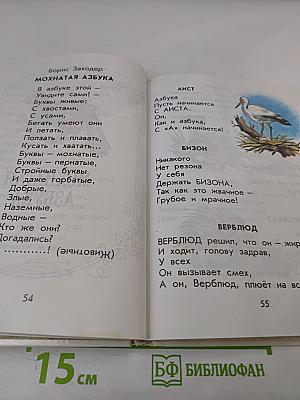 Борис Заходер
МОХНАТАЯ АЗБУКА
В азбуке этой —
Увидите сами! —
Буквы живые:
С хвостами,
С усами,
Бегать умеют они
И летать,
Ползать и плавать,
Кусать и хватать...
Буквы — мохнатые,
Буквы — пернатые,
Стройные буквы
И даже горбатые,
Добрые,
Злые,
Наземные,
Водные —
Кто же они?
Догадались?
............! (Животные)
54
АИСТ
Азбука
Пусть начинается
С АИСТА.
Он,
Как и азбука,
С «А» начинается!
БИЗОН
Никакого
Нет резона
У себя
Держать БИЗОНА,
Так как это жвачное —
Грубое и мрачное!
ВЕРБЛЮД
ВЕРБЛЮД решил, что он — жир
И ходит, голову задрав,
У всех
Он вызывает смех,
А он, Верблюд, плюёт на вс
55
15 см
БФ БИБЛИОФАН